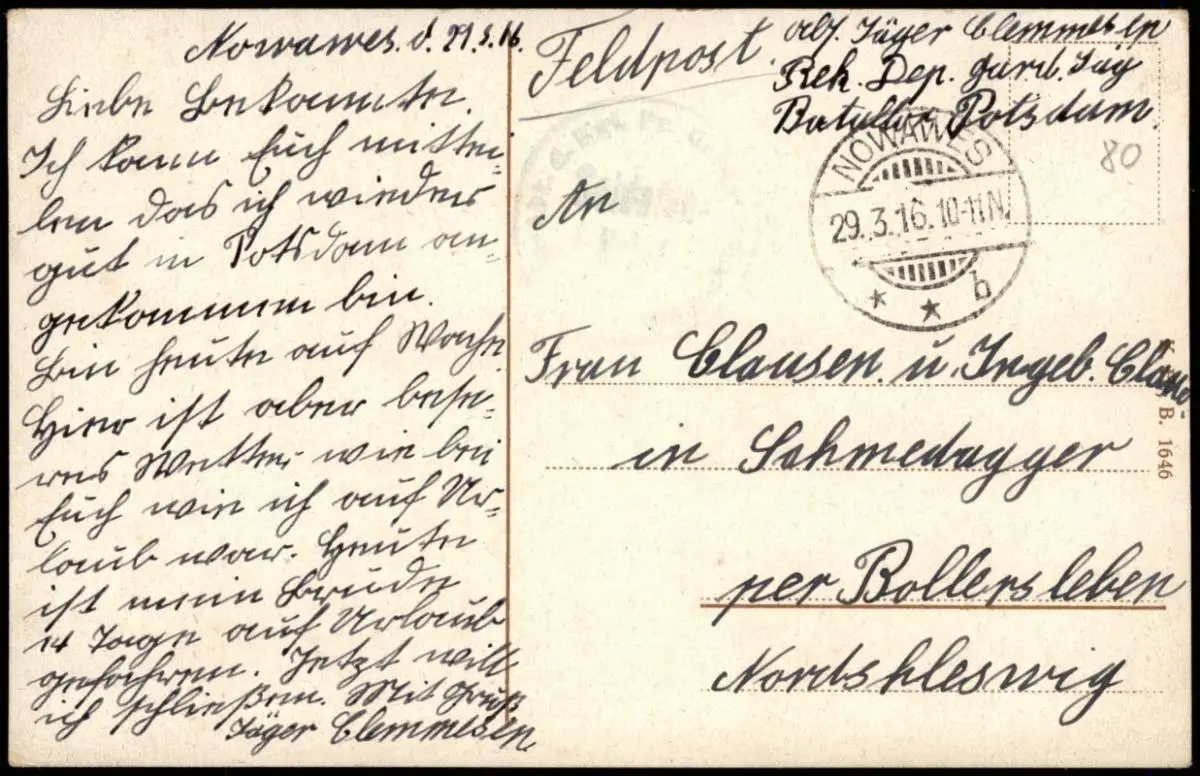 Nowawes. d. 29.3.16.
Liebe Bekannte.
Ich kann Euch mittei-
len das ich wieder
gut in Potsdam an-
gekommen bin.
Bin heute auf Wache.
Hier ist aber bese-
res Wetter wie bei
Euch wie ich auf Ur-
laub war. Heute
ist mein Bruder
14 Tage auf Urlaub
gefahren. Jetzt will
ich schließen. Mit Gruß
Jäger Clemmesen.
Feldpost.
Abs. Jäger Clemmesen
Rek. Dep. Gard. Jäg
Batallion Potsdam.
80
NOWAWES
29.3.16.10-11N.
* * b
An
Frau Clausen. u. Ingeb. Claus-
in Schmedagger
per Bollersleben
Nordshleswig
B. 1646